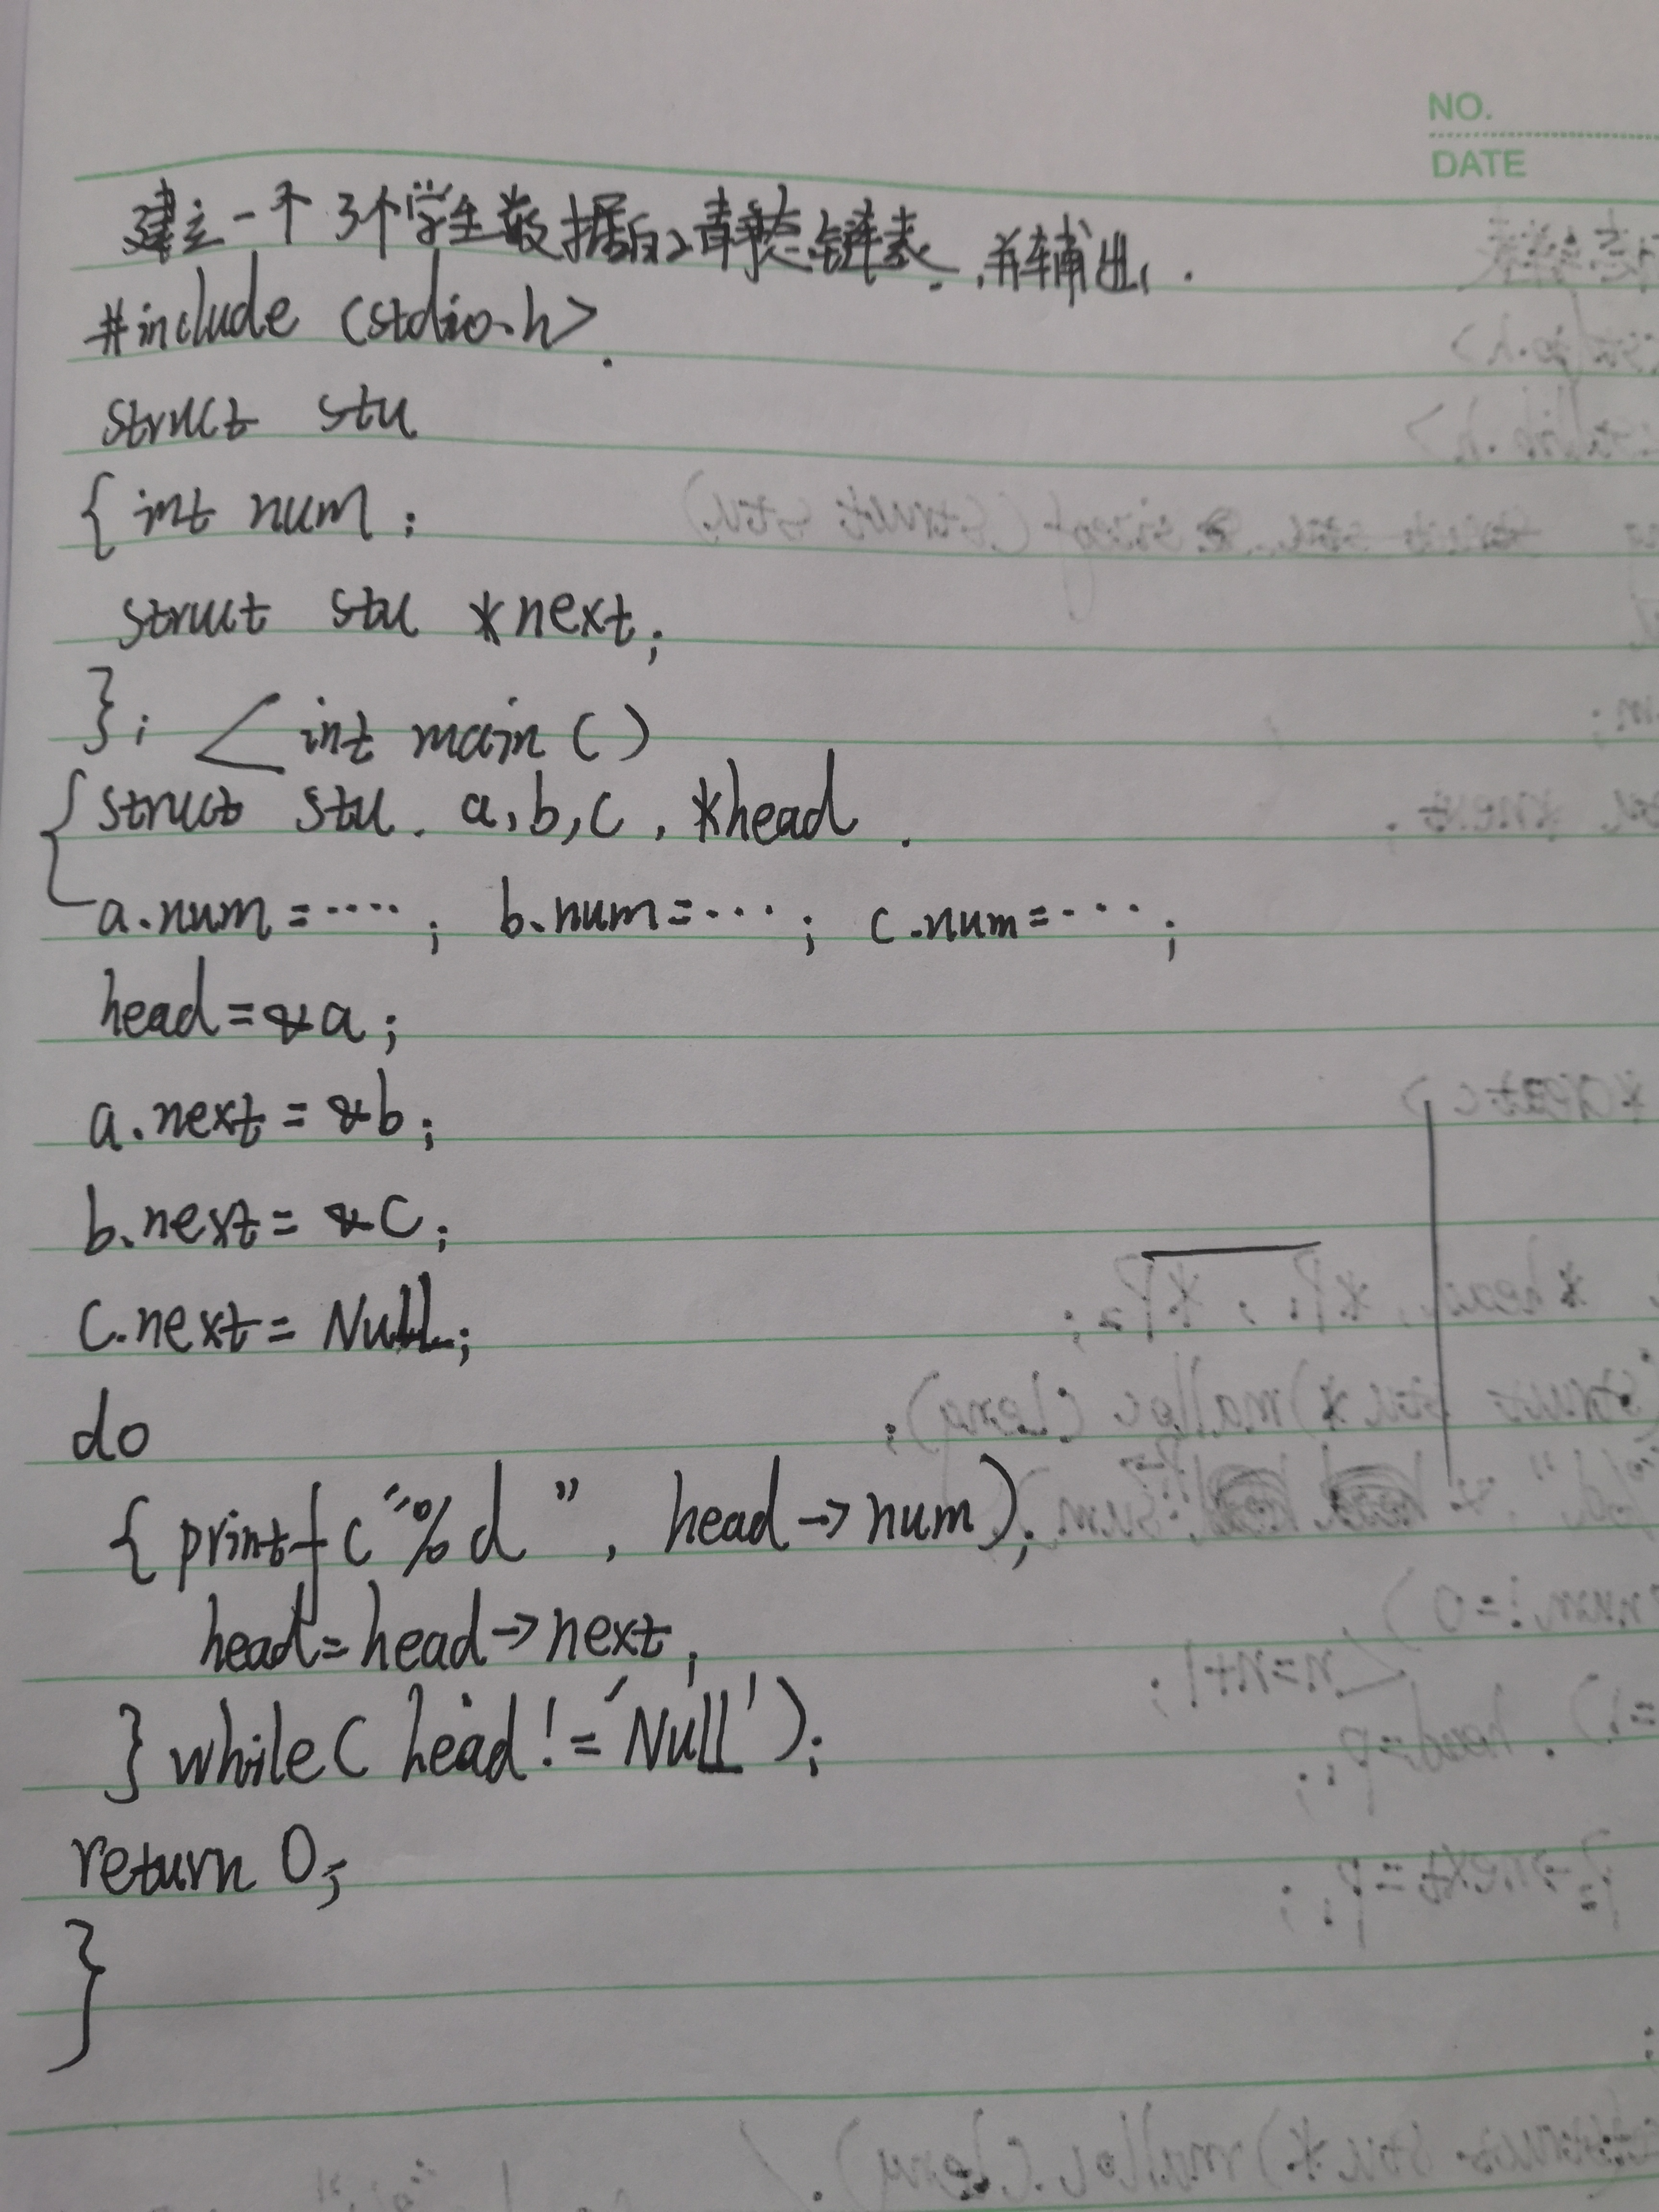 NO.
DATE
建立一个3个学生数据的静态链表,并输出.
#include <stdio.h>.
struct stu
{ int num;
struct stu *next;
}; < int main ( )
{ struct stu. a, b, c, *head.
a.num = ····; b.num = ···; c.num = ···;
head = &a;
a.next = &b;
b.next = &c;
c.next = Null;
do
{ printf ("%d ", head -> num);
head = head -> next;
} while ( head != 'Null');
return 0;
}